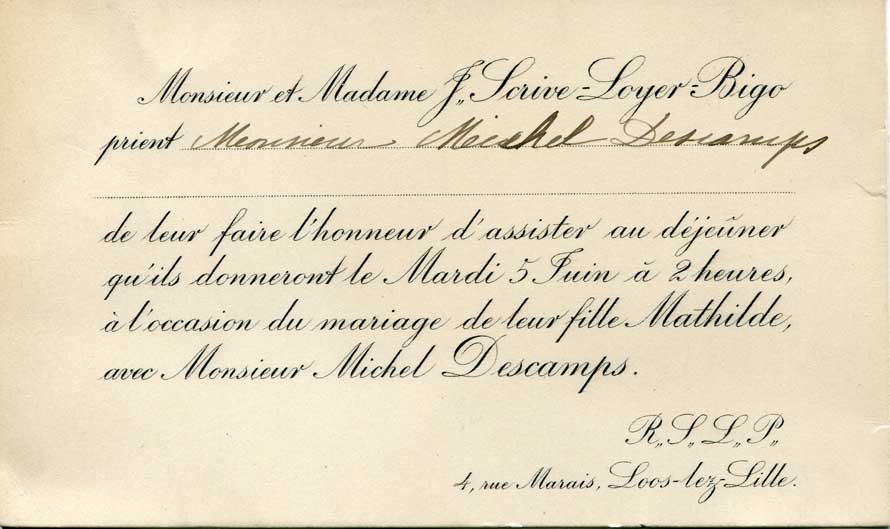 Monsieur et Madame J„ Scrive-Loyer-Bigo
prient Monsieur Michel Descamps
de leur faire l'honneur d'assister au déjeûner
qu'ils donneront le Mardi 5 Juin à 2 heures,
à l'occasion du mariage de leur fille Mathilde,
avec Monsieur Michel Descamps.
R„ S„ L„ P„
4, rue Marais, Loos-lez-Lille.